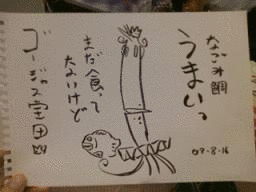 なごみ鯛
うまいっ
まだ食って
ないけど
ゴージャス宝田
07.8.16